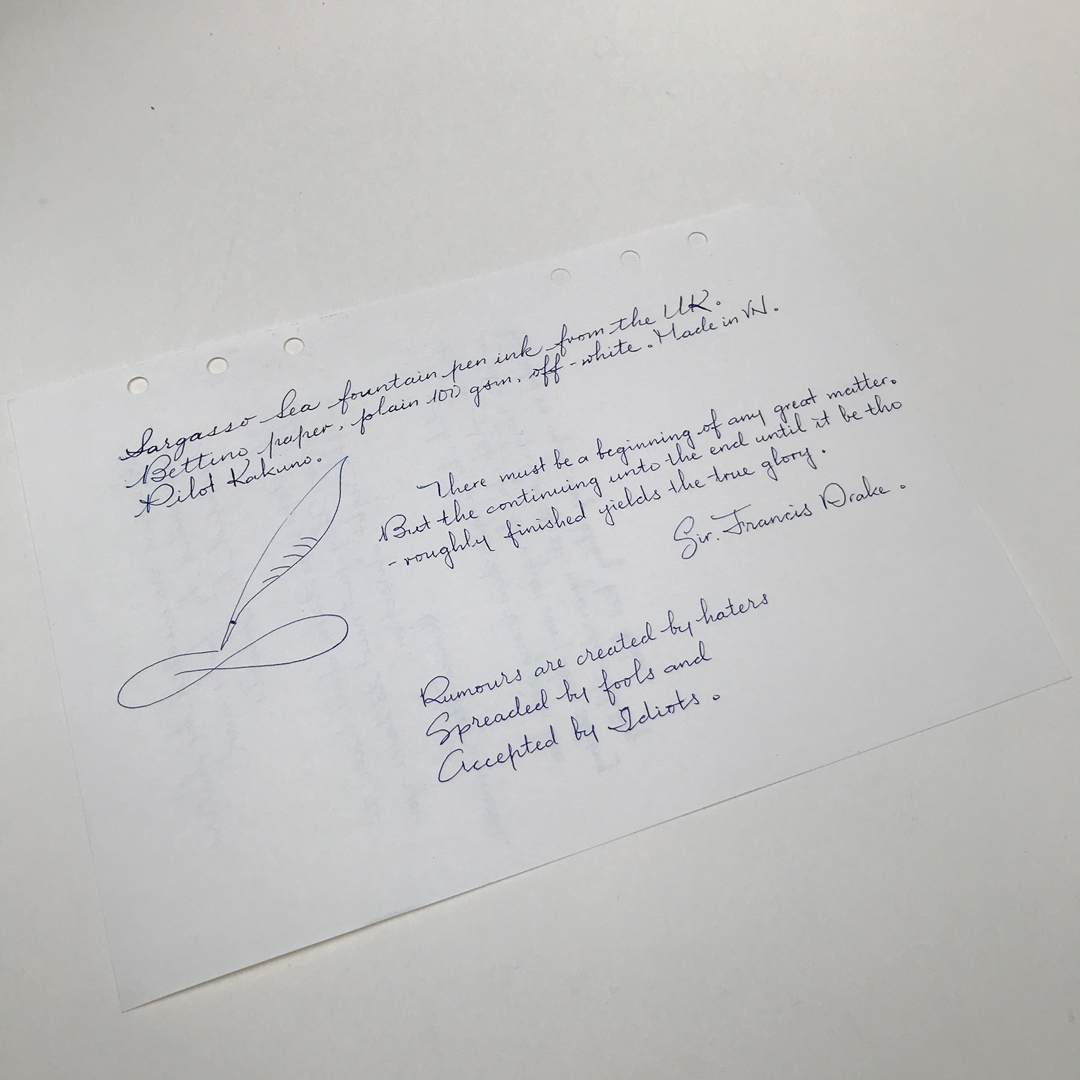 Sargasso Sea fountain pen ink from the UK.
Bettino paper, plain 100 gsm, off-white. Made in VN.
Pilot Kakuno.
There must be a beginning of any great matter.
But the continuing unto the end until it be tho
-roughly finished yields the true glory.
Sir. Francis Drake.
Rumours are created by haters
Spreaded by fools and
Accepted by Idiots.